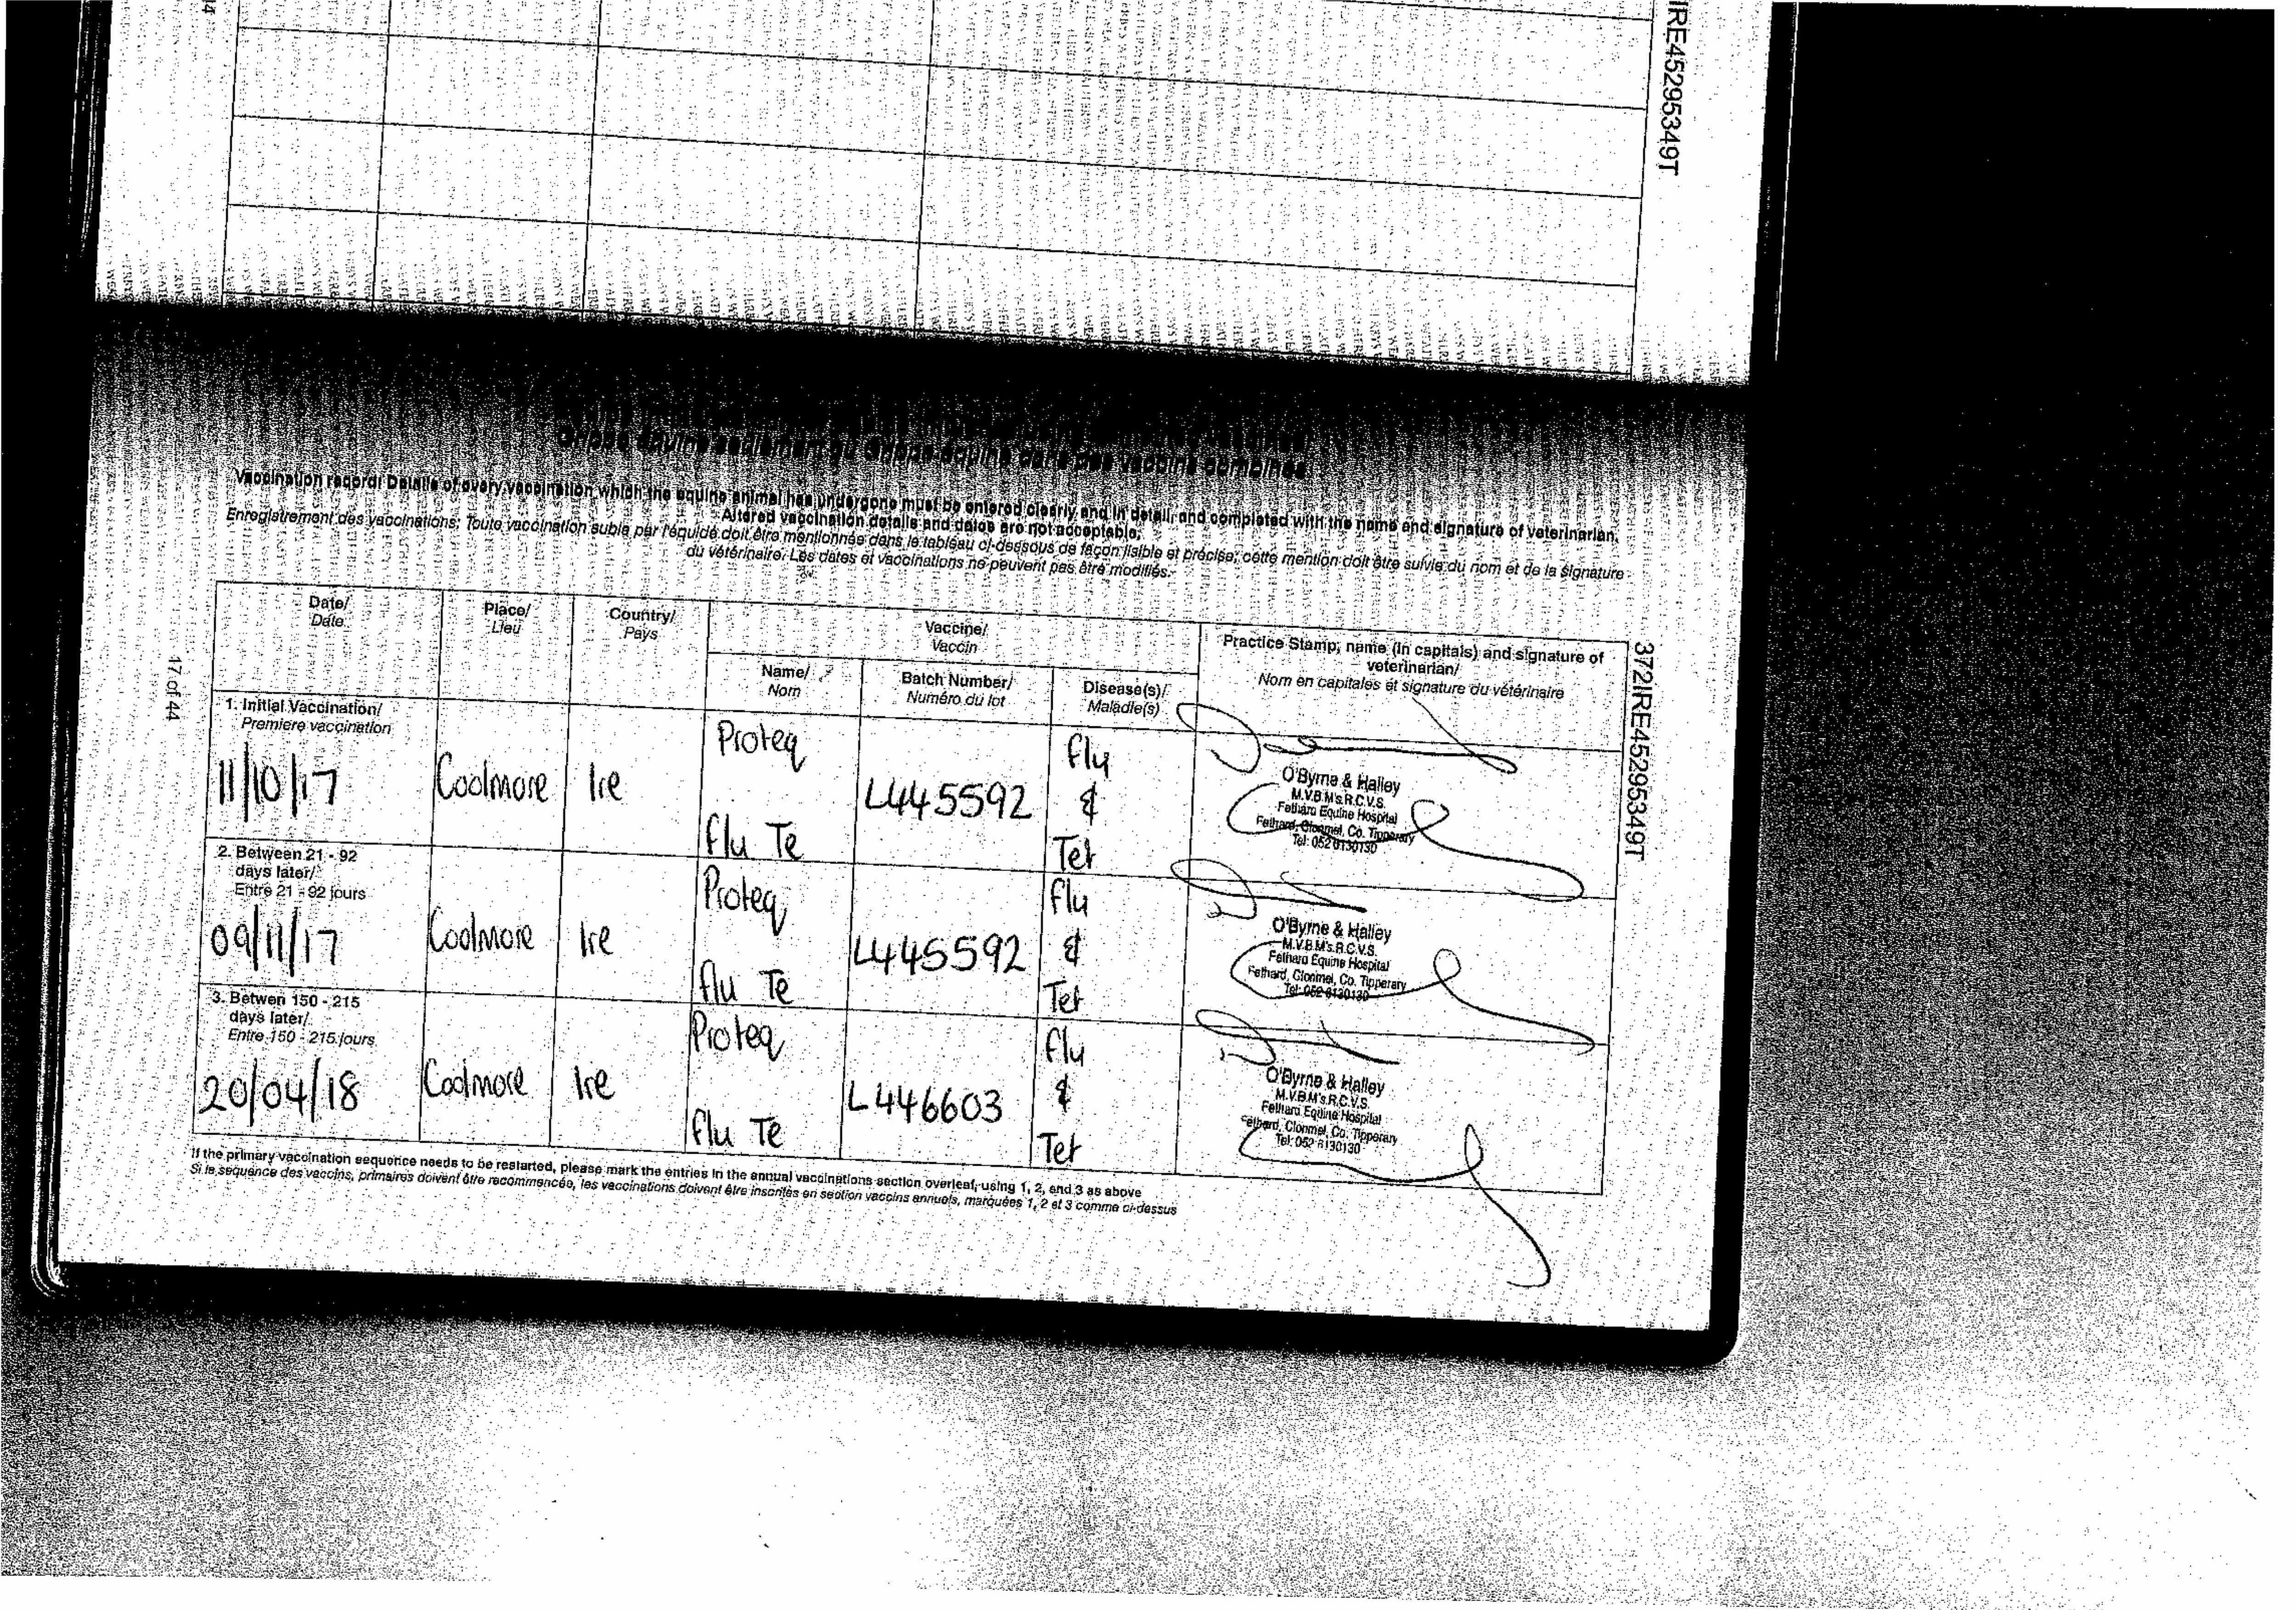 IRE45295349T
Grippe équine seulement ou Grippe équine dans des vaccins combinés
Vaccination record: Details of every vaccination which the equine animal has undergone must be entered clearly and in detail, and completed with the name and signature of veterinarian.
Altered vaccination details and dates are not acceptable.
Enregistrement des vaccinations: Toute vaccination subie par l'équidé doit être mentionnée dans le tableau ci-dessous de façon lisible et précise; cette mention doit être suivie du nom et de la signature
du vétérinaire. Les dates et vaccinations ne peuvent pas être modifiés.
Date/ Place/ Country/ Vaccine/ Practice Stamp, name (in capitals) and signature of
Date Lieu Pays Vaccin veterinarian/
Name/ Batch Number/ Disease(s)/ Nom en capitales et signature du vétérinaire
Nom Numéro du lot Maladie(s)
17 of 44
372IRE45295349T
1. Initial Vaccination/
Premiere vaccination
11/10/17 Coolmore Ire Proteq L445592 flu
flu Te & Tet
O'Byrne & Halley
M.V.B.M's.R.C.V.S.
Fethard Equine Hospital
Fethard, Clonmel, Co. Tipperary
Tel: 052 6130130
2. Between 21 - 92
days later/
Entre 21 - 92 jours
09/11/17 Coolmore Ire Proteq L445592 flu
flu Te & Tet
O'Byrne & Halley
M.V.B.M's.R.C.V.S.
Fethard Equine Hospital
Fethard, Clonmel, Co. Tipperary
Tel: 052 6130130
3. Betwen 150 - 215
days later/
Entre 150 - 215 jours
20/04/18 Coolmore Ire Proteq L446603 flu
flu Te & Tet
O'Byrne & Halley
M.V.B.M's.R.C.V.S.
Fethard Equine Hospital
Fethard, Clonmel, Co. Tipperary
Tel: 052 6130130
If the primary vaccination sequence needs to be restarted, please mark the entries in the annual vaccinations section overleaf, using 1, 2, and 3 as above
Si la sequence des vaccins, primaires doivent être recommencée, les vaccinations doivent être inscrites en section vaccins annuels, marquées 1, 2 et 3 comme ci-dessus